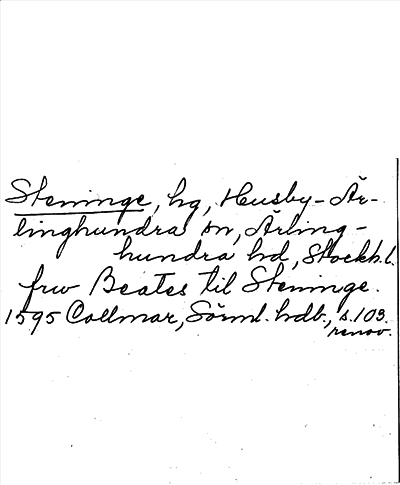 Steninge, hg, Husby-Är-
linghundra sn, Ärling-
hundra hd, Stockh. l.
frw Beates til Steninge.
1595 Collmar, Sörml. hdb., s. 103.
renov.